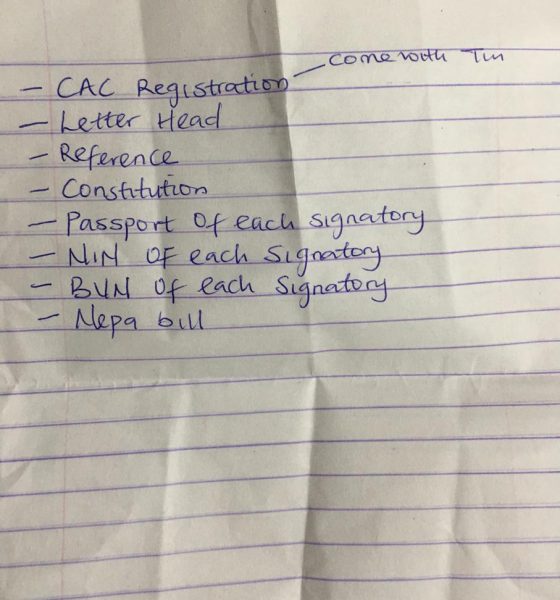 come with Tin
- CAC Registration
- Letter Head
- Reference
- Constitution
- Passport of each signatory
- NIN OF each signatory
- BVN Of each Signatory
- Nepa bill